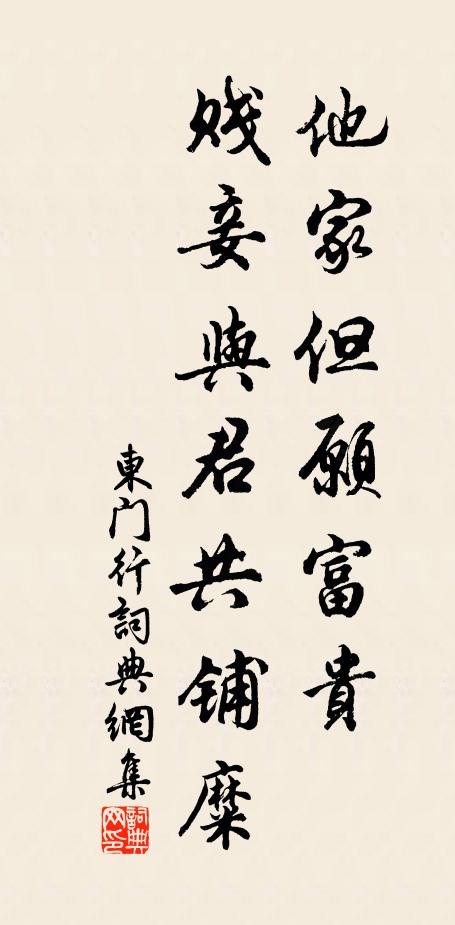 他家但願富貴
賤妾與君共鋪糜
東門行詞典網集
詞典
网印